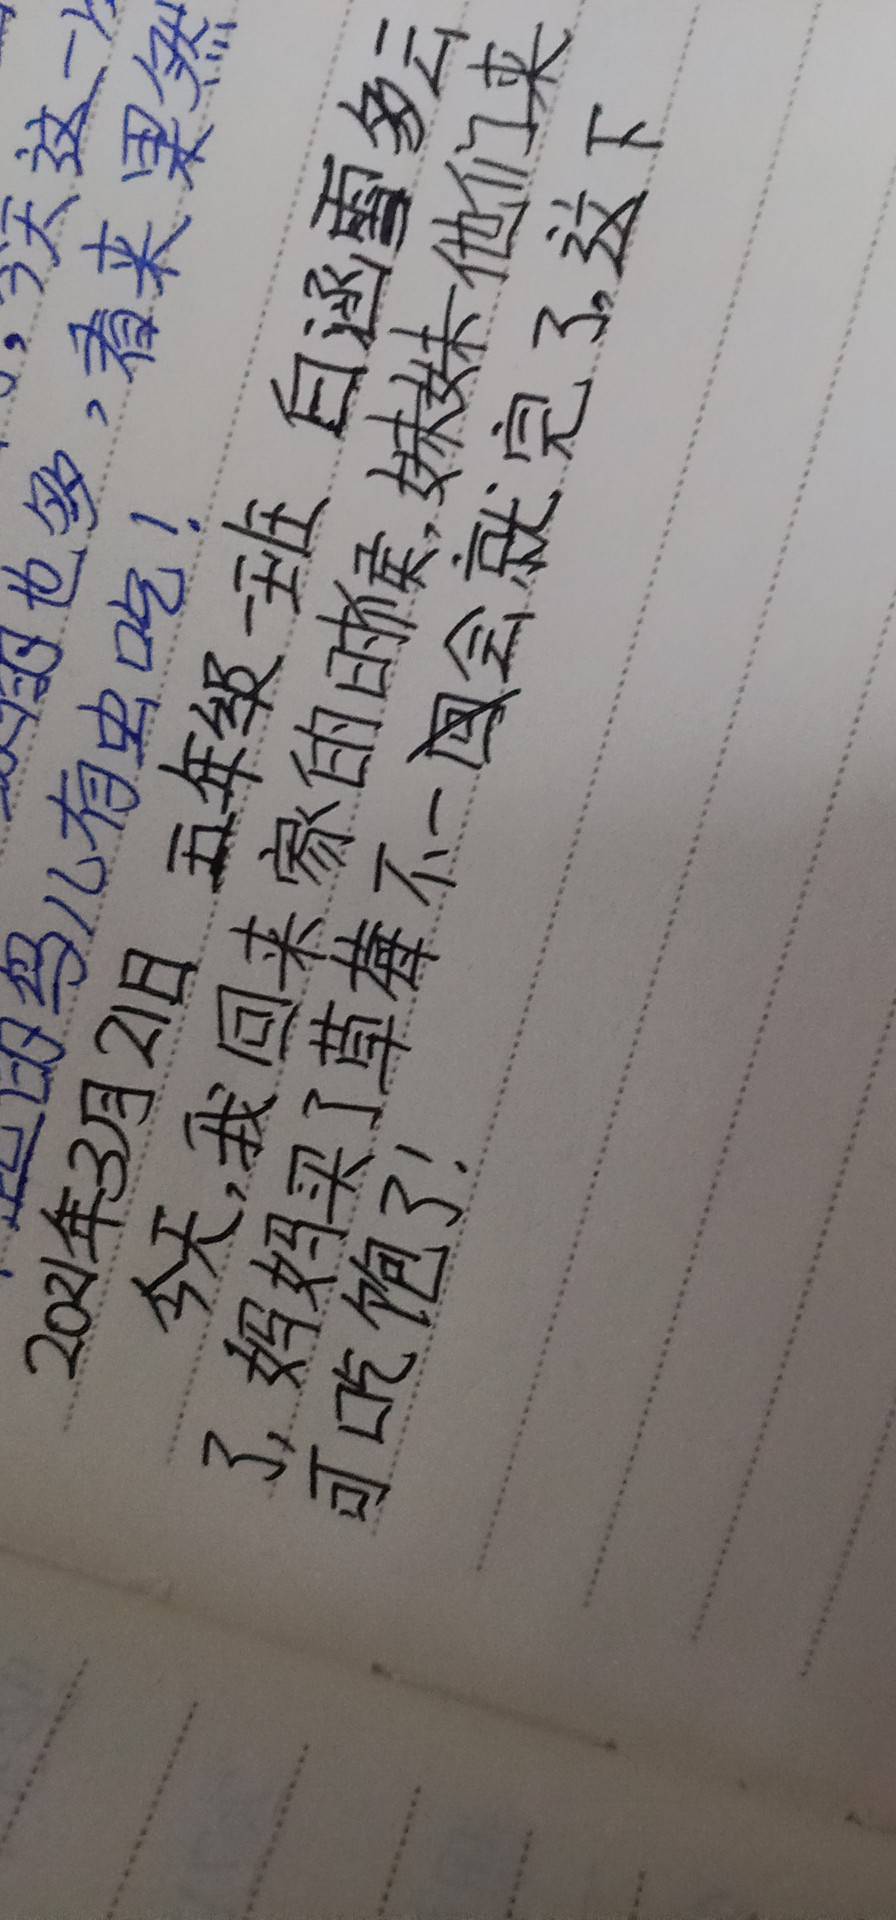 ，今天这一
也多，看来果然
的鸟儿有虫吃！
2021年3月21日 五年级一班 白涵雪多云
今天，我回来家的时候，妹妹他们来
了，妈妈买了草莓不一会就完了，这下
可吃饱了！